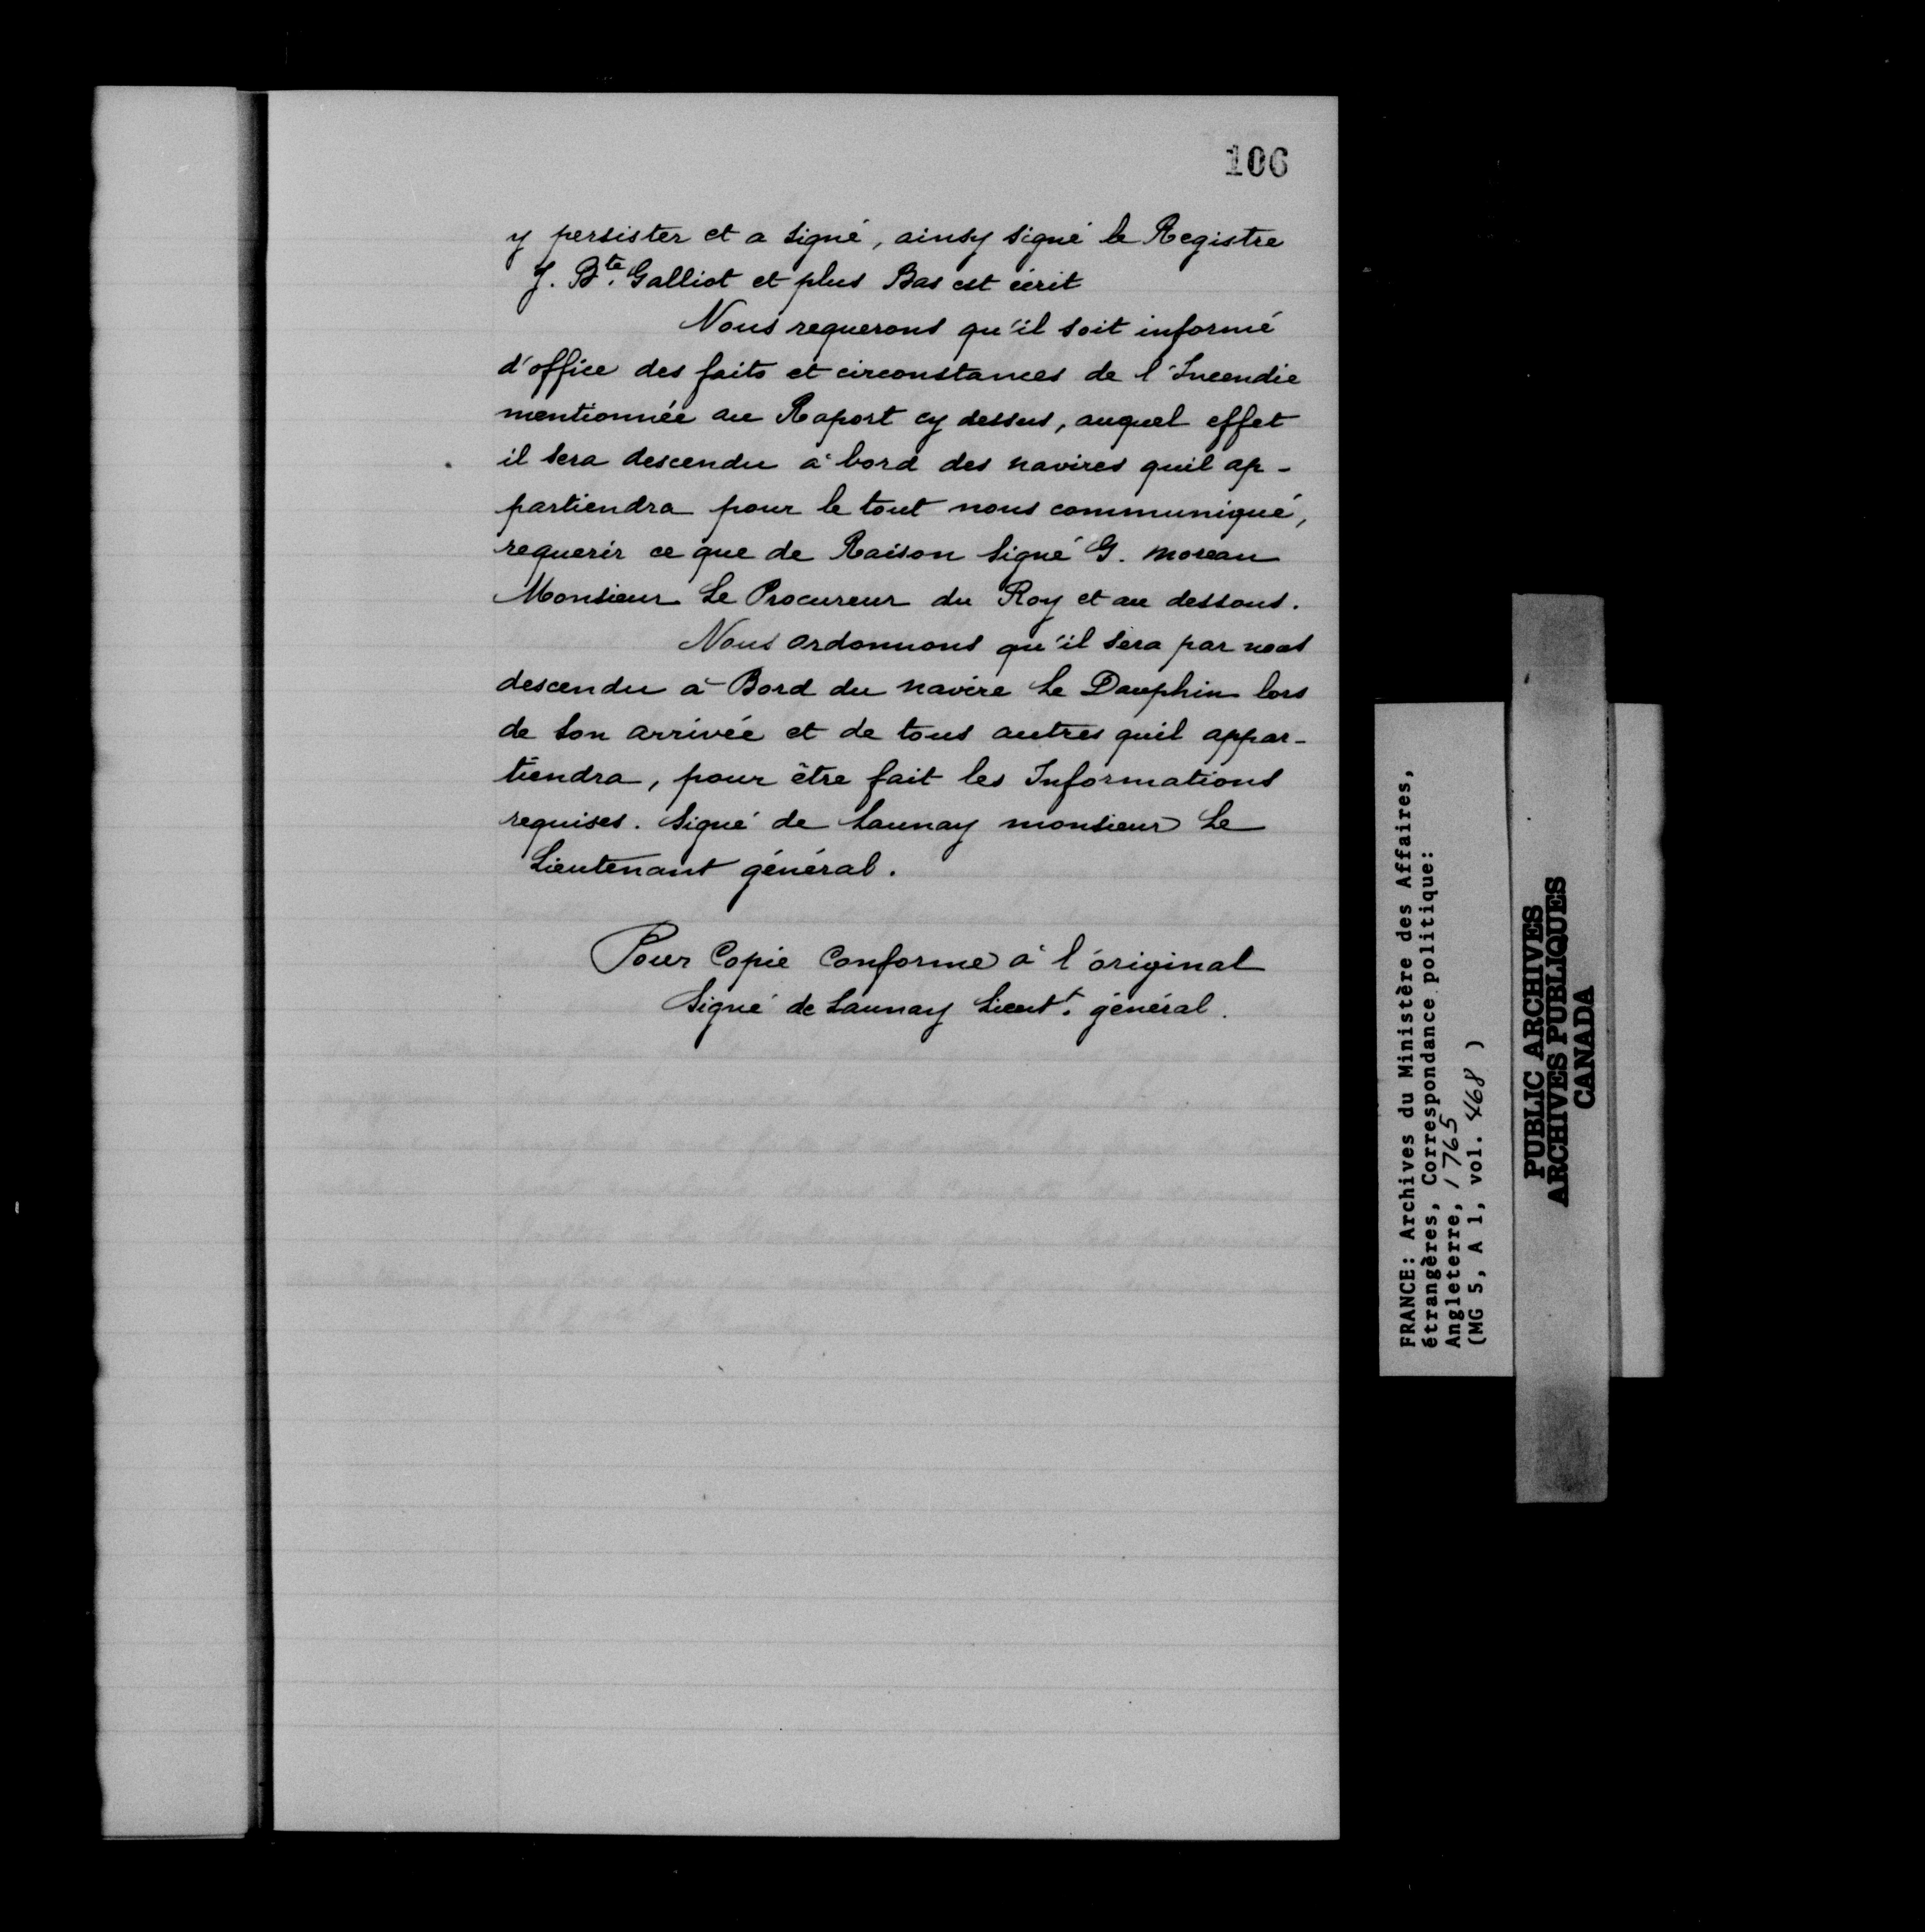 106
y persister et a signé, ainsy signé le Registre
J. Bte. Galliot et plus Bas est écrit
Nous requerons qu'il soit informé
d'office des faits et circonstances de l'Incendie
mentionnée au Raport cy dessus, auquel effet
il sera descendu à bord des navires quil ap-
partiendra pour le tout nous communiqué,
requerir ce que de Raison signé G. moreau
Monsieur Le Procureur du Roy et au dessous.
Nous ordonnons qu'il sera par nous
descendu à Bord du navire Le Dauphin lors
de son arrivée et de tous autres quil appar-
tiendra, pour être fait les Informations
requises. signé de Launay monsieur Le
Lieutenant général.
Pour Copie Conforme à l'original
signé de Launay Lieutt. général.
FRANCE: Archives du Ministère des Affaires,
étrangères, Correspondance politique:
Angleterre, 1765
(MG 5, A 1, vol. 468 )
PUBLIC ARCHIVES
ARCHIVES PUBLIQUES
CANADA